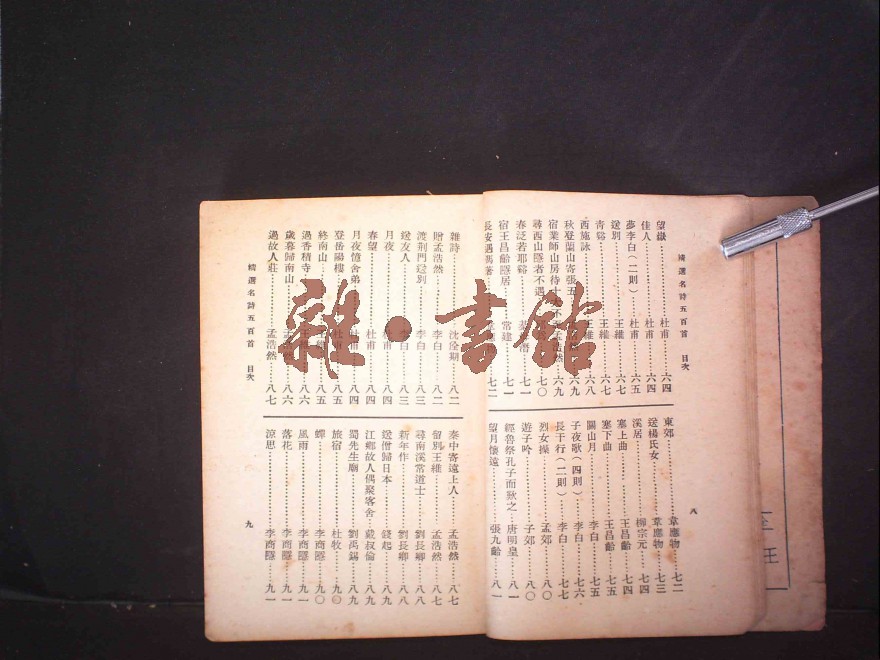 精選名詩五百首　目次
八
望嶽……杜甫 六四
佳人……杜甫 六四
夢李白（二則）……杜甫 六五
送別……王維 六七
青谿……王維 六七
西施詠……王維 六八
秋登蘭山寄張五 六九
宿業師山房待丁大不至 孟浩然 六九
尋西山隱者不遇 七〇
春泛若耶谿 七一
宿王昌齡隱居 常建 七一
長安遇馮著 七二
東郊……韋應物 七二
送楊氏女……韋應物 七三
溪居……柳宗元 七四
塞上曲……王昌齡 七四
塞下曲……王昌齡 七五
關山月……李白 七五
子夜歌（四則）……李白 七六
長干行（二則）……李白 七七
烈女操……孟郊 八〇
遊子吟……子郊 八〇
經魯祭孔子而歎之 唐明皇 八一
望月懷遠……張九齡 八一
雜詩……沈佺期 八二
贈孟浩然……李白 八二
渡荆門送別……李白 八三
送友人……李白 八三
月夜……杜甫 八四
春望……杜甫 八四
月夜憶舍弟……杜甫 八四
登岳陽樓……杜甫 八五
終南山 八五
過香積寺 八六
歲暮歸南山……孟浩然 八六
過故人莊……孟浩然 八七
秦中寄遠上人……孟浩然 八七
留別王維……孟浩然 八七
尋南溪常道士……劉長卿 八八
新年作……劉長卿 八八
送僧歸日本……錢起 八九
江鄉故人偶聚客舍 戴叔倫 八九
蜀先生廟……劉禹錫 八九
旅宿……杜牧 九〇
蟬……李商隱 九〇
風雨……李商隱 九一
落花……李商隱 九一
涼思……李商隱 九一
精選名詩五百首　目次
九
雜·書館